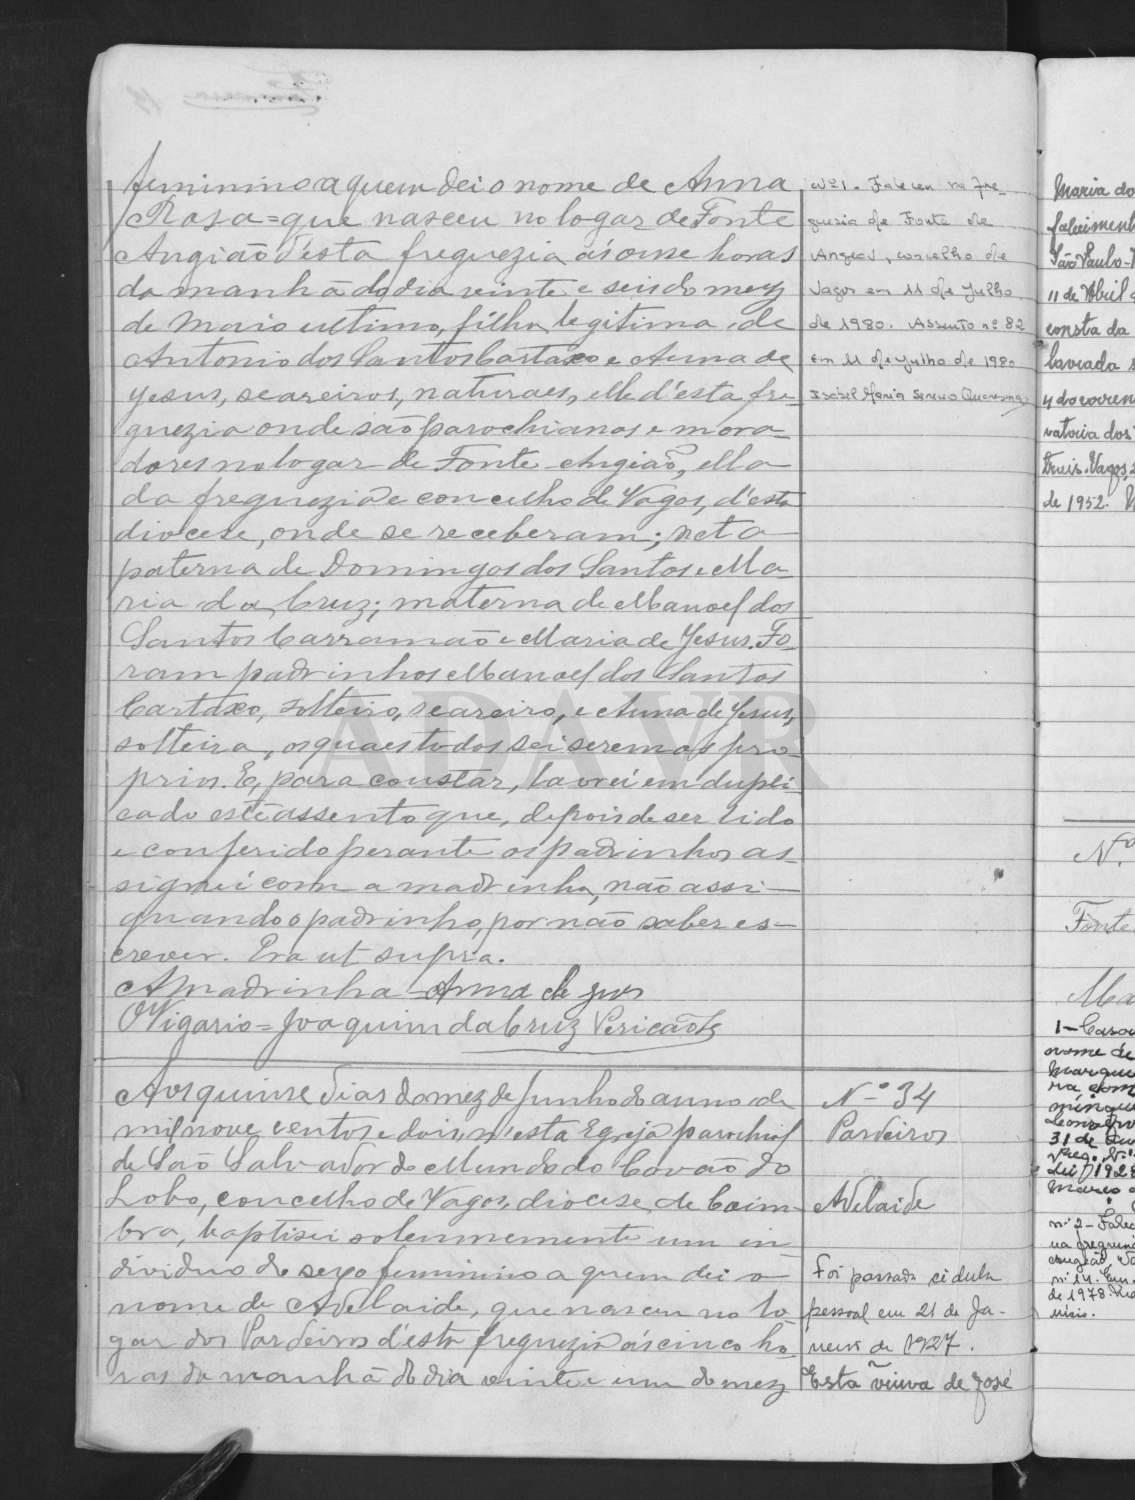 feminino a quem dei o nome de Anna
Rosa = que nasceu no logar de Fonte
Angião d'esta freguezia ás onse horas
da manhã do dia vinte e seis do mez
de Maio ultimo, filha legitima de
Antonio dos Santos Cartaxo e Anna de
Jesus, seareiros, naturaes, elle d'esta fre-
guezia onde são parochianos e mora-
dores no logar de Fonte Angião, ella
da freguezia e concelho de Vagos, d'esta
diocese, onde se receberam; neta
paterna de Domingos dos Santos e Ma-
ria da Cruz; materna de Manoel dos
Santos Carramão e Maria de Jesus. Fo-
ram padrinhos Manoel dos Santos
Cartaxo, solteiro, seareiro, e Anna de Jesus,
solteira, os quaes todos sei serem os pro-
prios. E, para constar, lavrei em dupli-
cado este assento que, depois de ser lido
e conferido perante os padrinhos as-
signei com a madrinha, não assi-
gnando o padrinho, por não saber es-
crever. Era ut supra.
A madrinha = Anna de Jesus
O Vigario = Joaquim da Cruz Pericão
Nº 1. Faleceu na fre-
guesia de Fonte de
Angeão, concelho de
Vagos em 11 de Julho
de 1980. Assento nº 82
em 11 de Julho de 1980
Isabel Maria
Aos quinse dias do mez de Junho do anno de
mil nove centos e dois, n'esta Egreja parochial
de São Salvador do Mundo do Covão do
Lobo, concelho de Vagos, diocese de Coim-
bra, baptisei solemnemente um in-
dividuo do sexo feminino a quem dei o
nome de Adelaide, que nasceu no lo-
gar dos Pardeiros d'esta freguezia ás cinco ho-
ras da manhã do dia vinte e um do mez
Nº 34
Pardeiros
Adelaide
Foi passada cedula
pessoal em 21 de Ja-
neiro de 1927.
Está viuva de José
Maria do
São Paulo
11 de Abril
consta da
lavrada
Vagos,
de 1952.
N.º
Fonte
Ma
1 - Casou
nome de
31 de
1928
Março
nº 2 - Falec
na freguesia
nº 14. Em
de 1978.
ADAVR